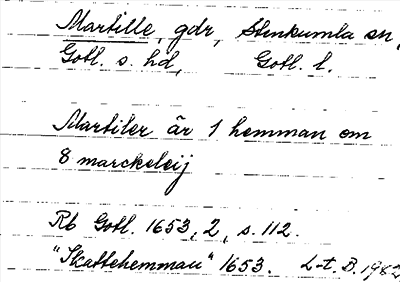 Martille, gdr, Stenkumla sn,
Gotl. s. hd, Gotl. l.
Martiler är 1 hemman om
8 marckeleij
Rb Gotl. 1653, 2, s. 112.
"Skattehemman" 1653. L-t. B. 1982